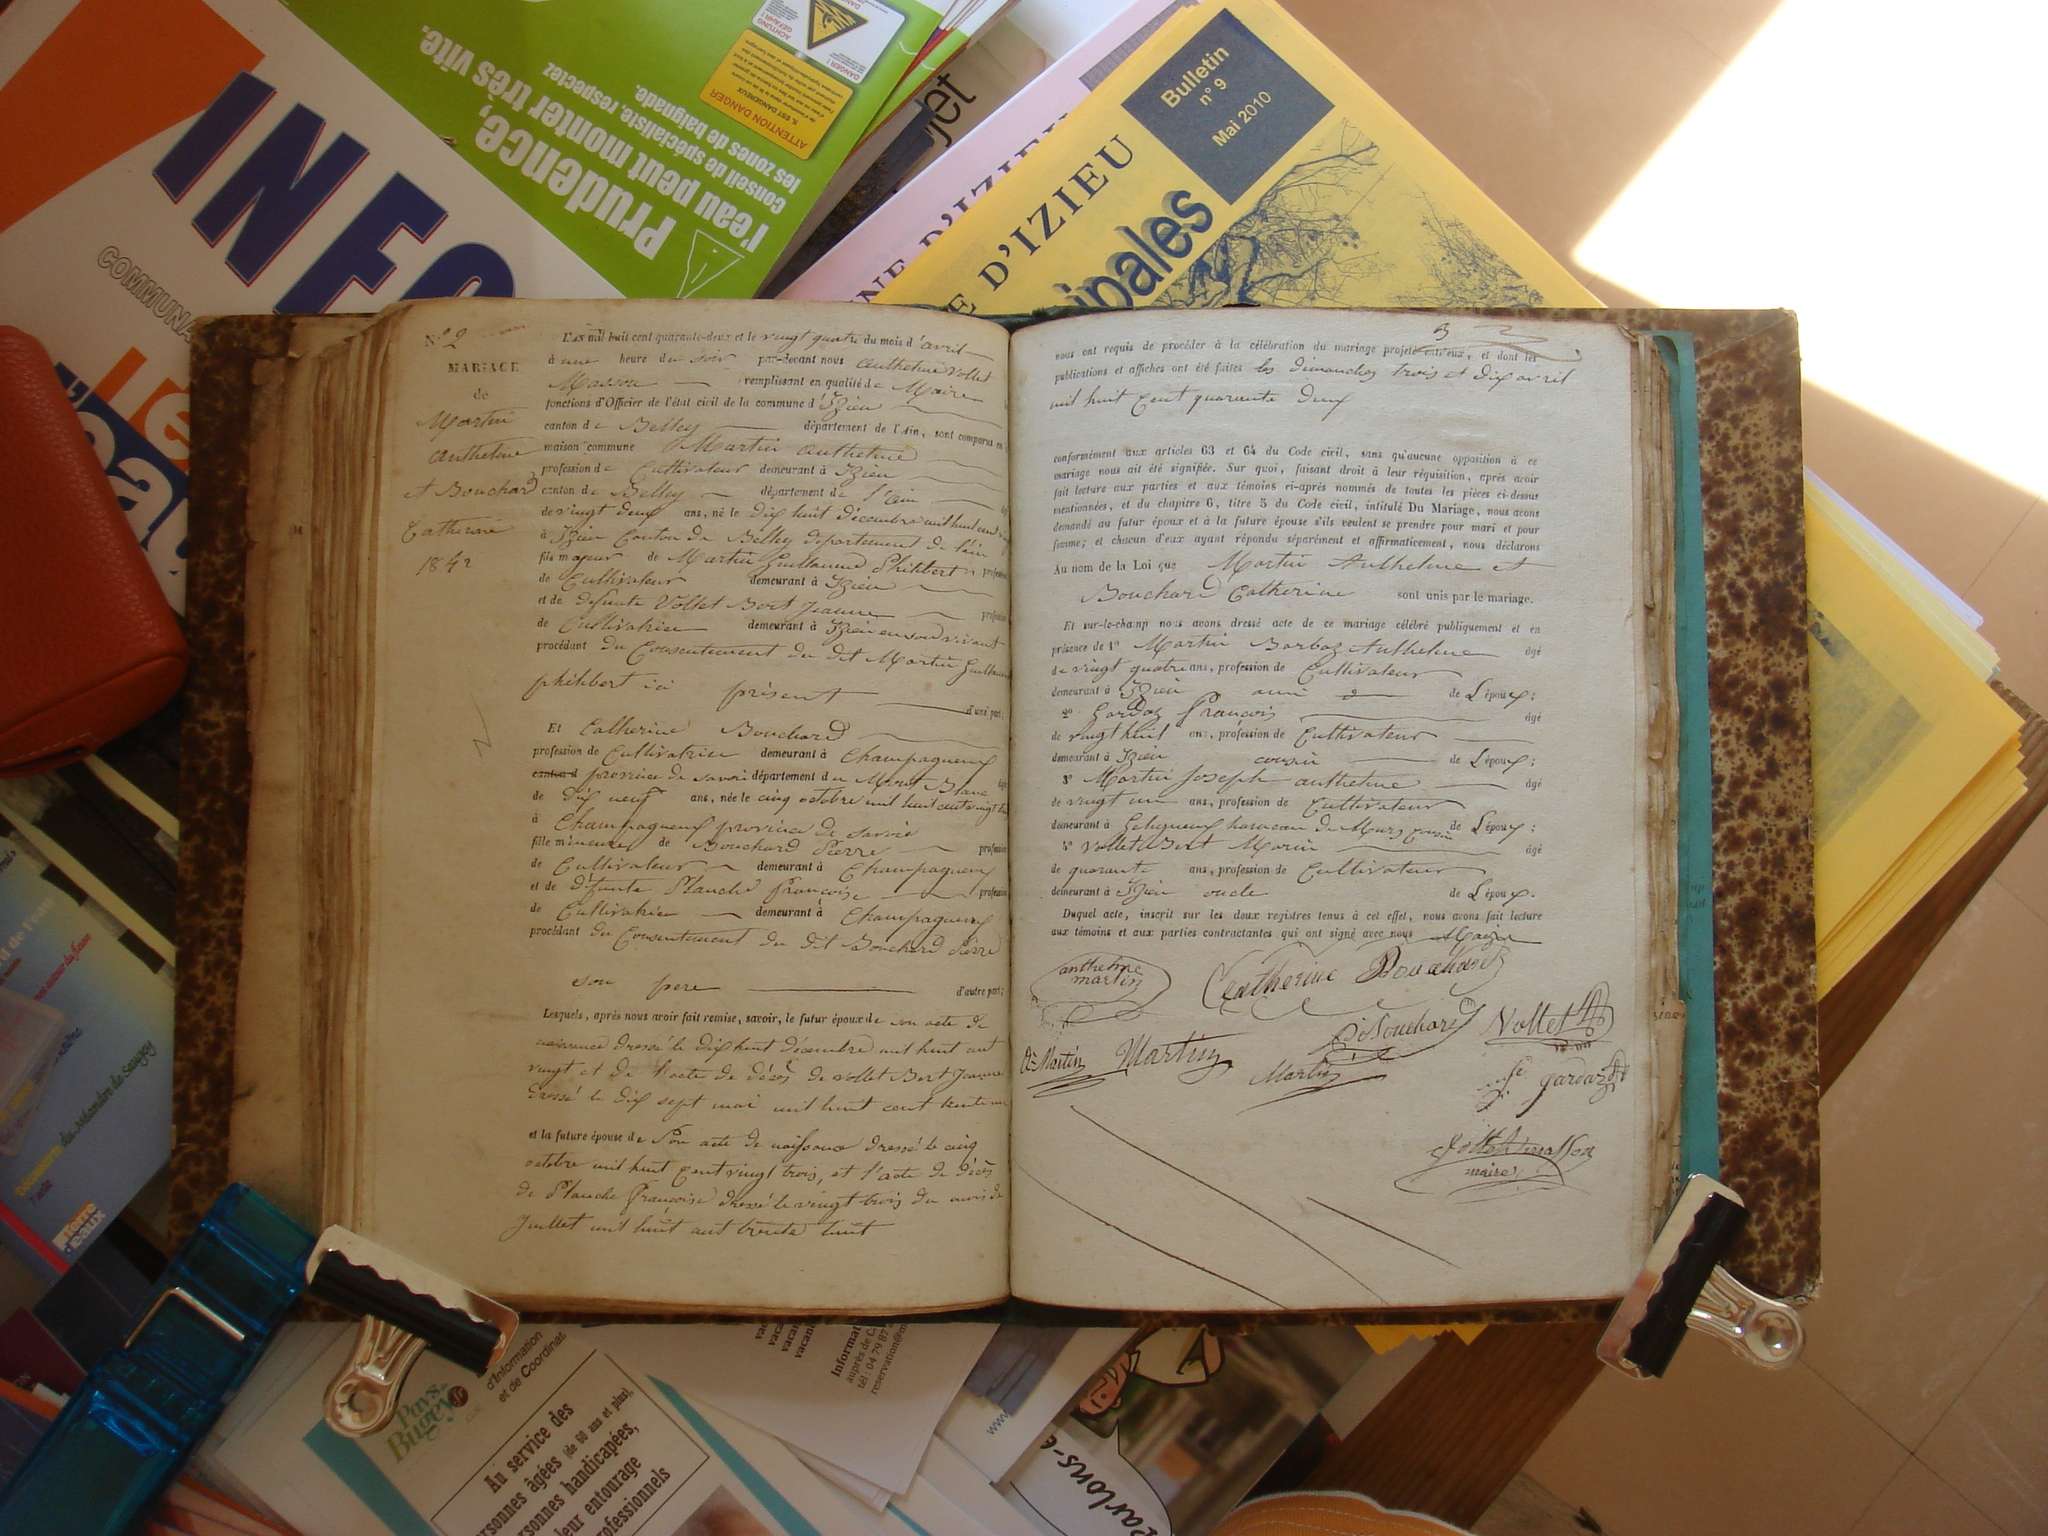 INFO
COMMUNA
Prudence,
l'eau peut monter très vite.
Conseil de spécialiste, respectez
les zones de baignade.
ATTENTION DANGER
Bulletin
n° 9
Mai 2010
NE D'IZIEU
E D'IZIEU
cipales
jet
N° 2
MARIAGE
de
Martin
Anthelme
et Bouchard
Catherine
1842
L'an mil huit cent quarante-deux et le vingt quatre du mois d'avril
à une heure du soir par-devant nous anthelme Vollet
Masson remplissant en qualité de Maire
fonctions d'Officier de l'état civil de la commune d'Izieu
canton de Belley département de l'Ain, sont comparus en
maison commune Martin anthelme
profession de Cultivateur demeurant à Izieu
canton de Belley département de l'Ain
de vingt deux ans, né le dix huit décembre mil huit cent
à Izieu Canton de Belley département de l'ain
fils majeur de Martin Guillaume Philibert
de Cultivateur demeurant à Izieu
et de defunte Vollet Bort Jeanne
de Cultivatrice demeurant à Izieu en son vivant
procédant du Consentement du dit Martin Guillaume
philibert ici présent d'une part;
Et Catherine Bouchard
profession de Cultivatrice demeurant à Champagneux
canton d province de savoie département du Mont Blanc
de dix neuf ans, née le cinq octobre mil huit cent vingt
à Champagneux province de savoie
fille mineure de Bouchard Pierre
de Cultivateur demeurant à Champagneux
et de défunte Planche françoise
de Cultivatrice demeurant à Champagneux
procédant du Consentement du dit Bouchard Pierre
son pere d'autre part;
Lesquels, après nous avoir fait remise, savoir, le futur époux de son acte de
naissance dressé le dix huit décembre mil huit cent
vingt et de l'acte de décès de Vollet Bort Jeanne
dressé le dix sept mai mil huit cent trente
et la future épouse de son acte de naissance dressé le cinq
octobre mil huit cent vingt trois, et l'acte de décès
de Planche françoise dressé le vingt trois du mois de
Juillet mil huit cent trente huit
3
nous ont requis de procéder à la célébration du mariage projeté entr'eux, et dont les
publications et affiches ont été faites les dimanches trois et dix avril
mil huit Cent quarante deux
conformément aux articles 63 et 64 du Code civil, sans qu'aucune opposition à ce
mariage nous ait été signifiée. Sur quoi, faisant droit à leur réquisition, après avoir
fait lecture aux parties et aux témoins ci-après nommés de toutes les pièces ci-dessus
mentionnées, et du chapitre 6, titre 5 du Code civil, intitulé Du Mariage, nous avons
demandé au futur époux et à la future épouse s'ils veulent se prendre pour mari et pour
femme; et chacun d'eux ayant répondu séparément et affirmativement, nous déclarons
Au nom de la Loi que Martin Anthelme et
Bouchard Catherine sont unis par le mariage.
Et sur-le-champ nous avons dressé acte de ce mariage célébré publiquement et en
présence de 1° Martin Barbaz Anthelme âgé
de vingt quatre ans, profession de Cultivateur
demeurant à Izieu ami de L'époux;
2° Gardaz françois âgé
de vingt huit ans, profession de Cultivateur
demeurant à Izieu cousin de L'époux;
3° Martin Joseph anthelme âgé
de vingt un ans, profession de Cultivateur
demeurant à hameau de Murs cousin de L'époux;
4° Vollet Bort Marin âgé
de quarante ans, profession de Cultivateur
demeurant à Izieu oncle de L'époux.
Duquel acte, inscrit sur les deux registres tenus à cet effet, nous avons fait lecture
aux témoins et aux parties contractantes qui ont signé avec nous Maire
anthelme
martin
Catherine Bouchard
Bouchard
Vollet
Martin
Martin
Martin
gardaz
maire
Terre
d'eaux
Pays
Bugey
d'Information
et de Coordinat
Au service des
personnes âgées (de 60 ans et plus),
personnes handicapées,
leur entourage
professionnels
Informat
auprès de C
tél : 04 79 87
reservation@m
www
Parlons-e